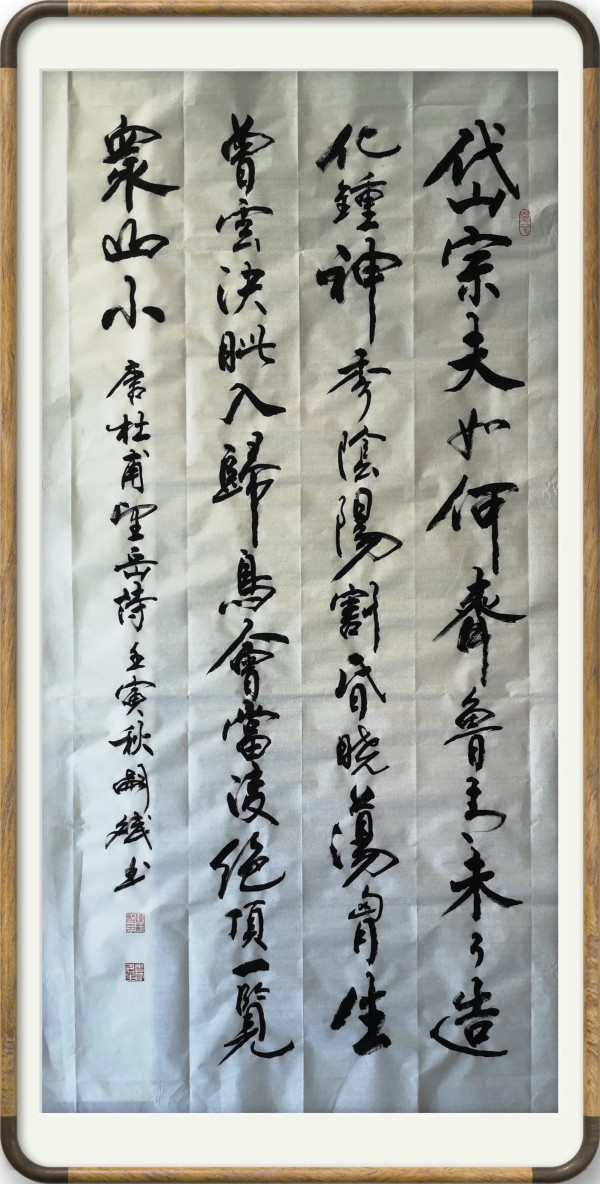 岱宗夫如何齊魯青未了造
化鍾神秀陰陽割昏曉蕩胷生
曾雲決眦入歸鳥會當凌絶頂一覽
衆山小 唐杜甫望岳詩壬寅秋書